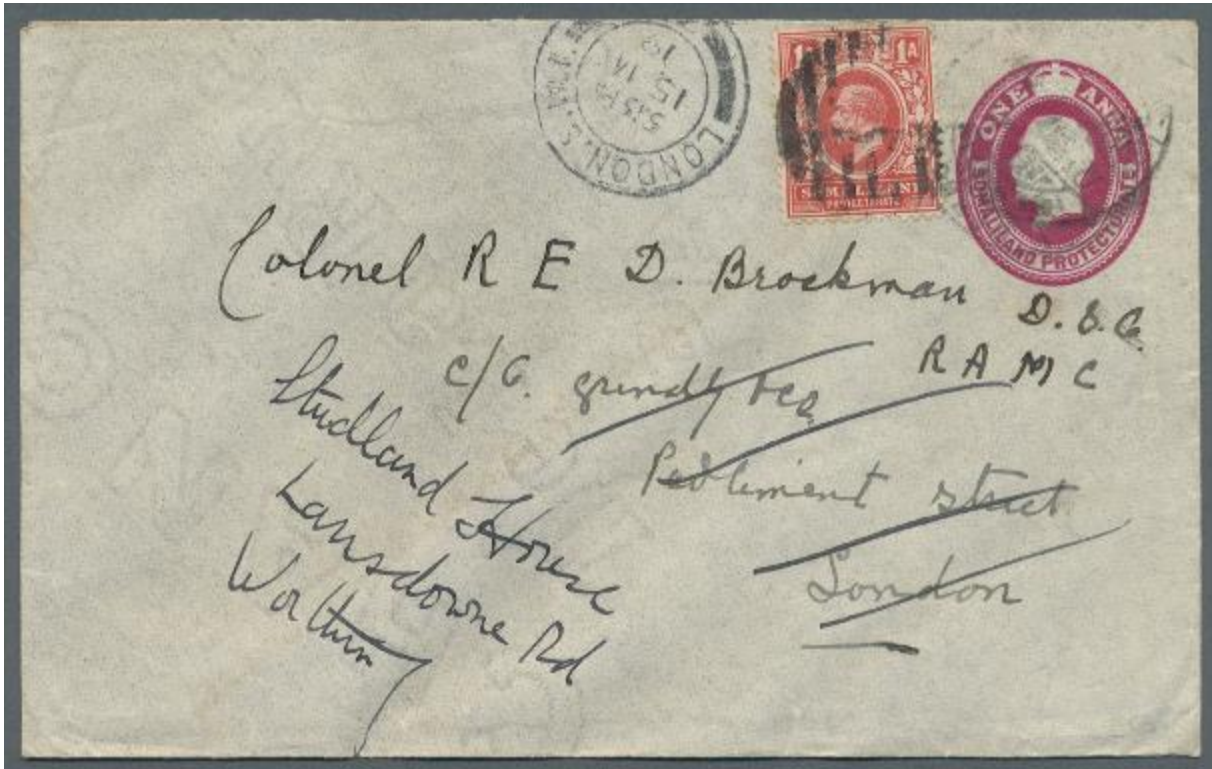 LONDON.S.W.1
5.15 PM
15 14
1A 1A
SOMALILAND
PROTECTORATE
ONE ANNA
SOMALILAND PROTECTORATE
Colonel R E D. Brockman
D.S.O.
R A M C
c/o. Grindlay &co
Parliment street
London
Studland House
Lansdowne Rd
Worthing